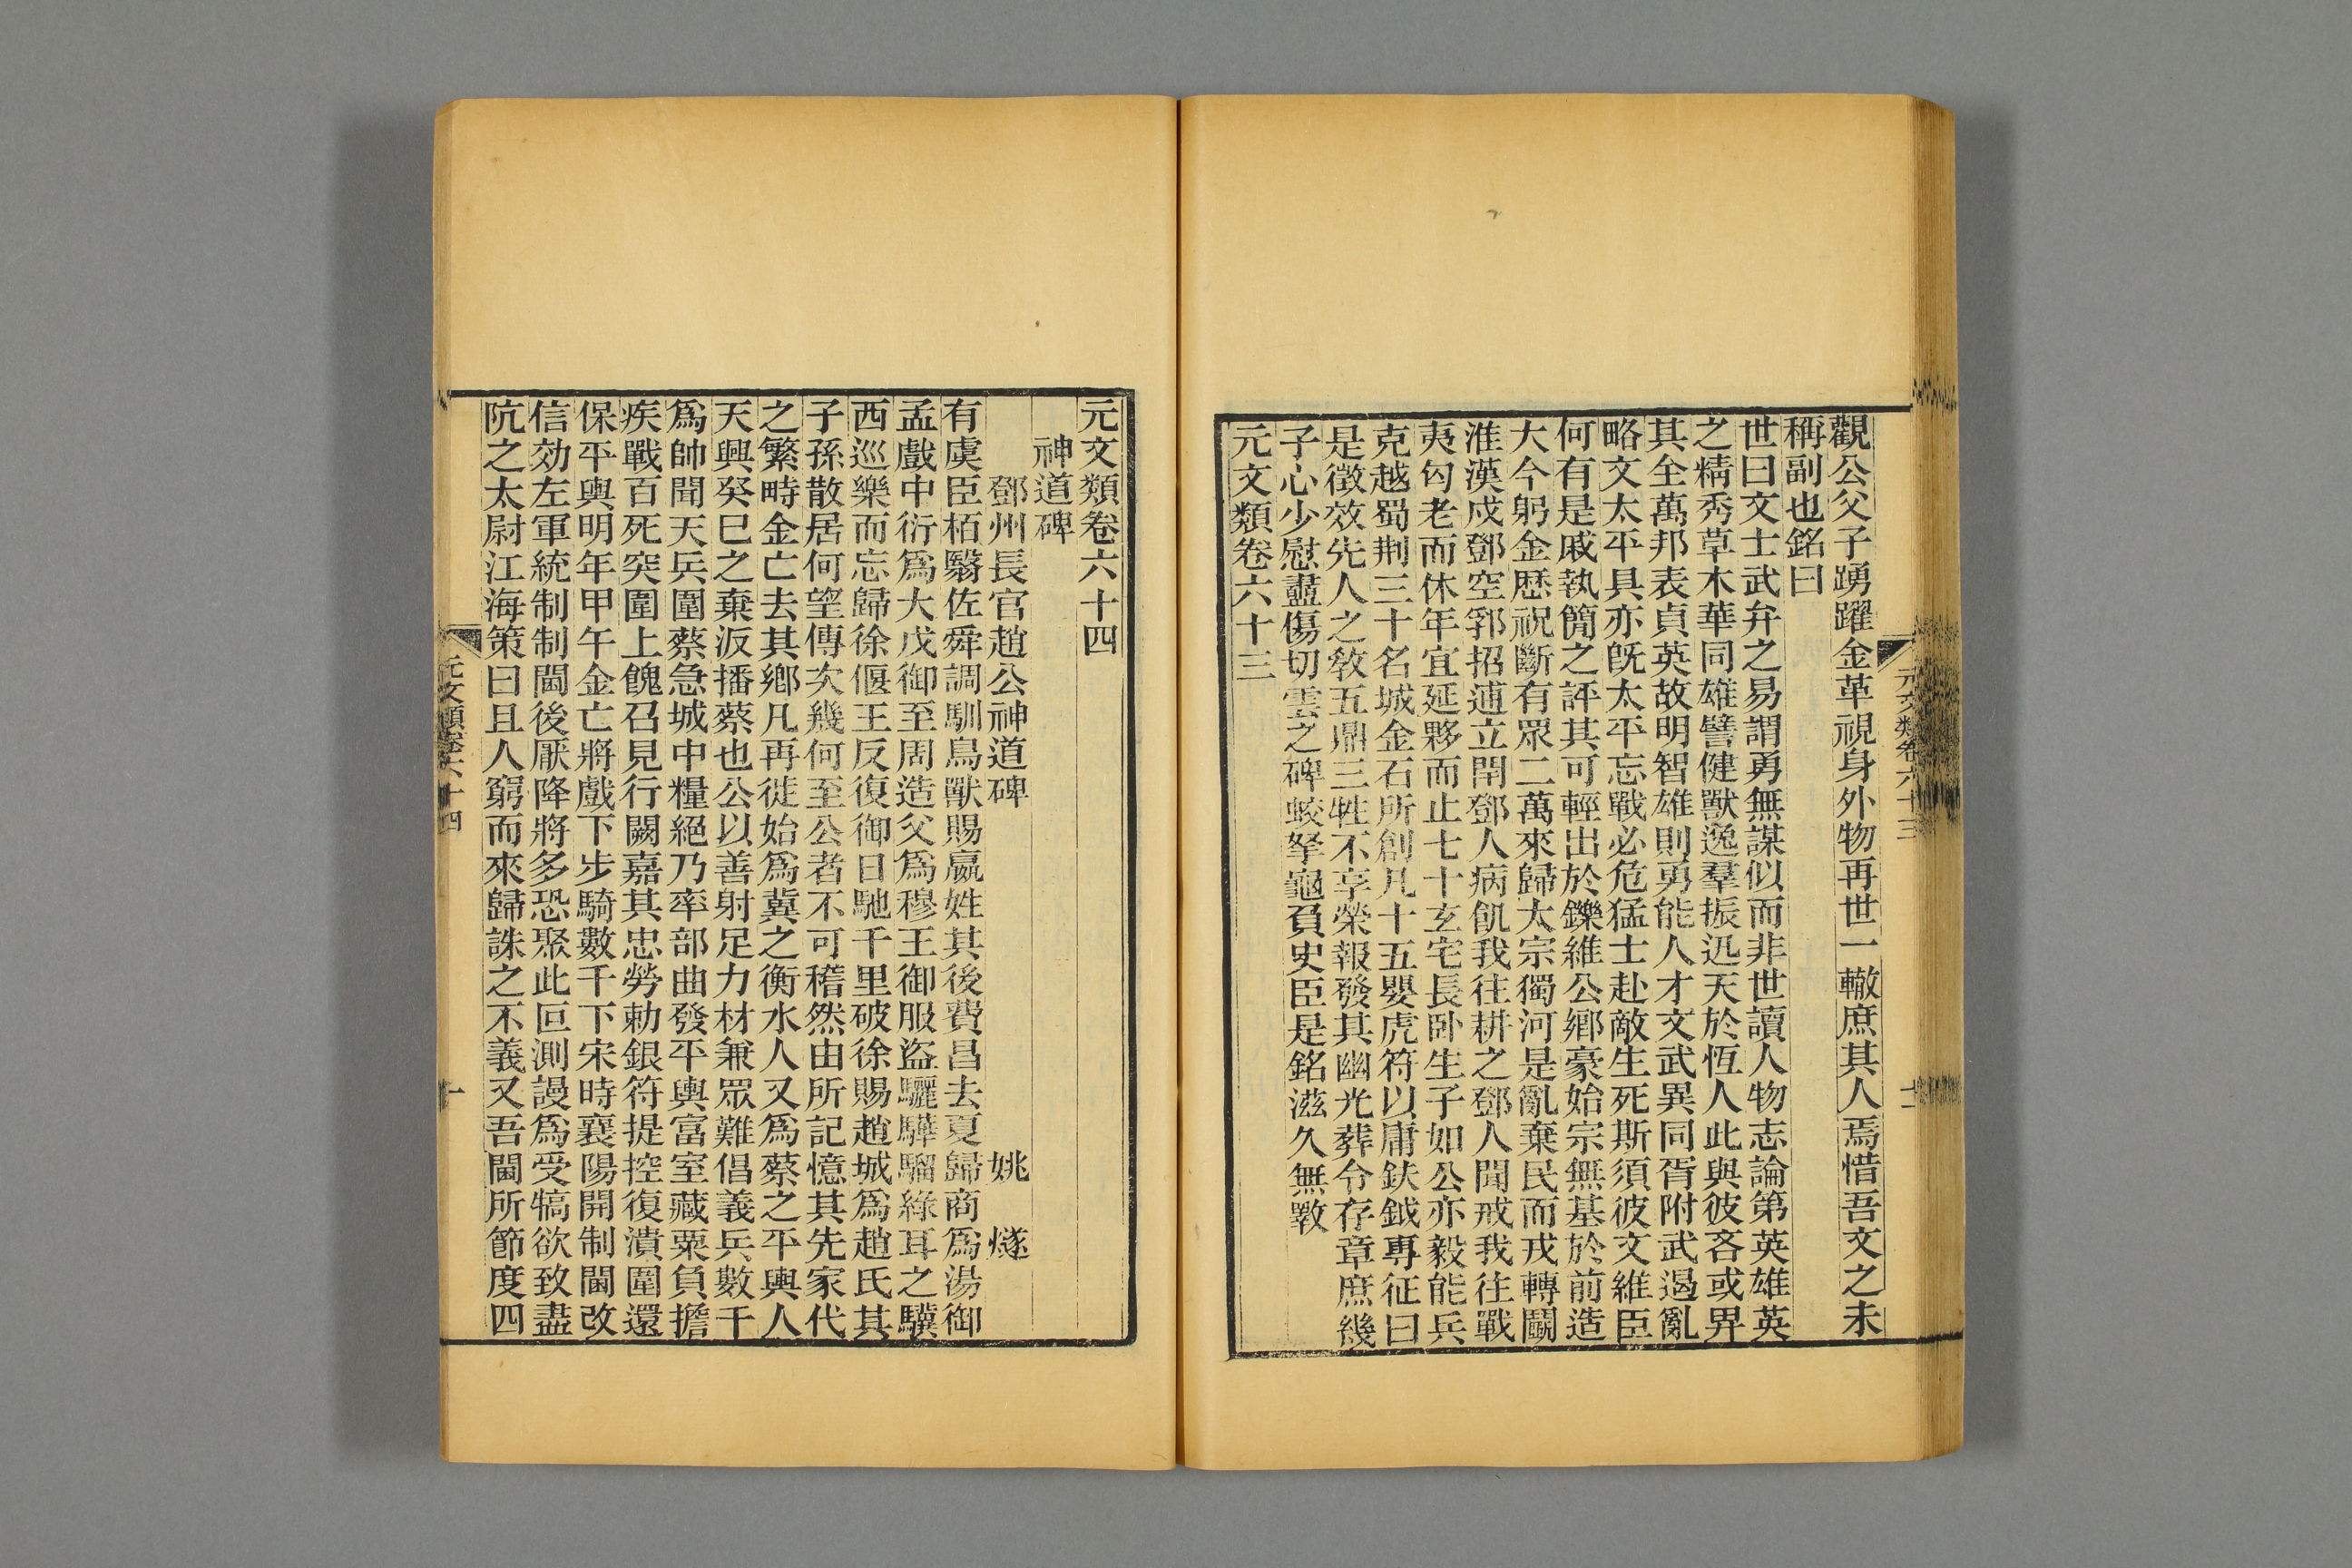 觀公父子踴躍金革視身外物再世一轍庶其人焉惜吾文之未
稱副也銘曰
世曰文士武弁之易謂勇無謀似而非世讀人物志論第英雄英
之精秀草木華同雄譬健獸逸羣振迅天於恆人此與彼吝或畀
其全萬邦表貞英故明智雄則勇能人才文武異同胥附武遏亂
略文太平具亦旣太平忘戰必危猛士赴敵生死斯須彼文維臣
何有是戚執簡之評其可輕出於鑠維公鄉豪始宗無基於前造
大今躬金歷祝斷有眾二萬來歸太宗獨河是亂棄民而戎轉鬬
淮漢戍鄧空郛招逋立閈鄧人病飢我往耕之鄧人聞戒我往戰
夷匄老而休年宜延夥而止七十玄宅長卧生子如公亦毅能兵
克越蜀荆三十名城金石所創凡十五嬰虎符以庸鈇鉞專征曰
是徵效先人之敎五鼎三牲不享榮報發其幽光葬令存章庶幾
子心少慰衋傷切雲之碑蛟拏龜負史臣是銘滋久無斁
元文類卷六十三
元文類卷六十三
十一
元文類卷六十四
神道碑
鄧州長官趙公神道碑 姚燧
有虞臣栢翳佐舜調馴鳥獸賜嬴姓其後費昌去夏歸商爲湯御
孟戲中衍爲大戊御至周造父爲穆王御服盜驪驊騮綠耳之驥
西巡樂而忘歸徐偃王反復御日馳千里破徐賜趙城爲趙氏其
子孫散居何望傳次幾何至公者不可稽然由所記憶其先家代
之繁畤金亡去其鄉凡再徙始爲冀之衡水人又爲蔡之平輿人
天興癸巳之棄汳播蔡也公以善射足力材兼眾難倡義兵數千
爲帥聞天兵圍蔡急城中糧絕乃率部曲發平輿富室藏粟負擔
疾戰百死突圍上餽召見行闕嘉其忠勞勅銀符提控復潰圍還
保平輿明年甲午金亡將戲下步騎數千下宋時襄陽開制閫改
信効左軍統制制閫後厭降將多恐聚此叵測謾爲受犒欲致盡
阬之太尉江海策曰且人窮而來歸誅之不義又吾閫所節度四
元文類卷六十四
一